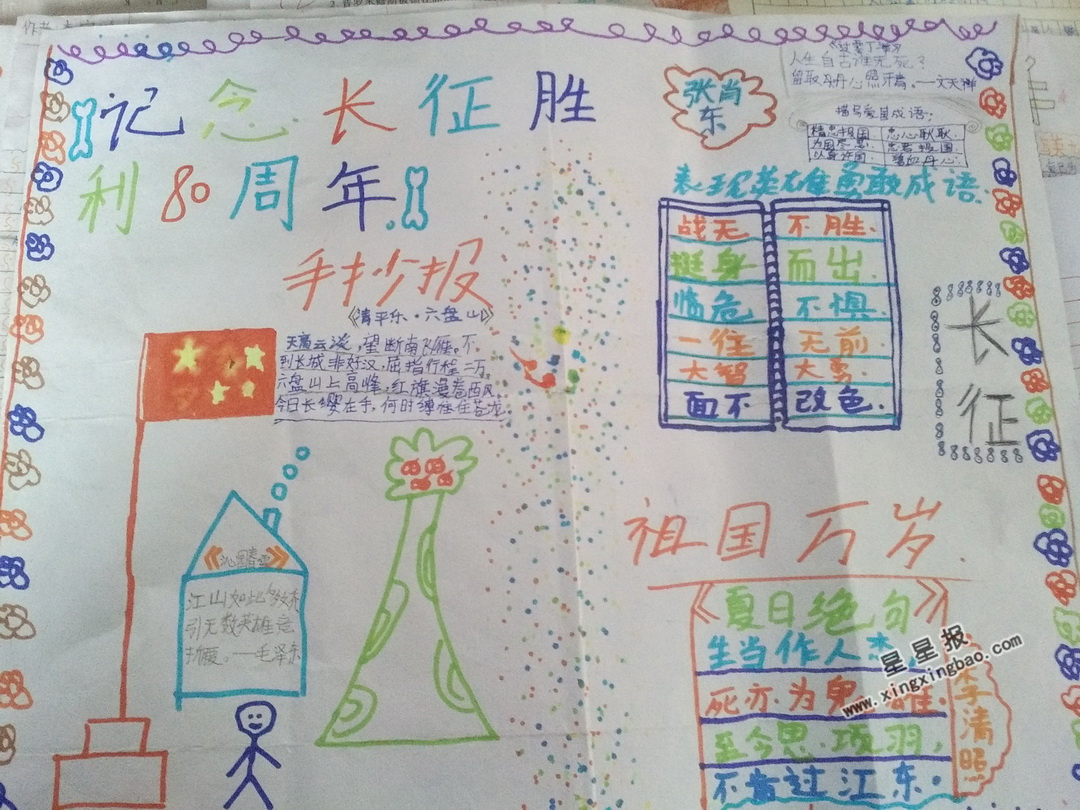 记念长征胜
利80周年
手抄报
《清平乐·六盘山》
天高云淡,望断南飞雁。不
到长城非好汉,屈指行程二万。
六盘山上高峰,红旗漫卷西风。
今日长缨在手,何时缚住苍龙
《沁园春雪》
江山如此多娇
引无数英雄竞
折腰。——毛泽东
张肖
东
《过零丁洋》
人生自古谁无死?
留取丹心照汗青。——文天祥
描写爱国成语:
精忠报国 忠心耿耿.
为国尽忠. 忠君报国
以身许国. 碧血丹心.
表现英雄勇敢成语.
战无 不胜.
挺身 而出.
临危 不惧.
一往 无前
大智 大勇.
面不 改色.
长
征
祖国万岁.
《夏日绝句》
生当作人
死亦为鬼 雄.
至今思项羽,
不肯过江东.
李清照
星星报
www.xingxingbao.com